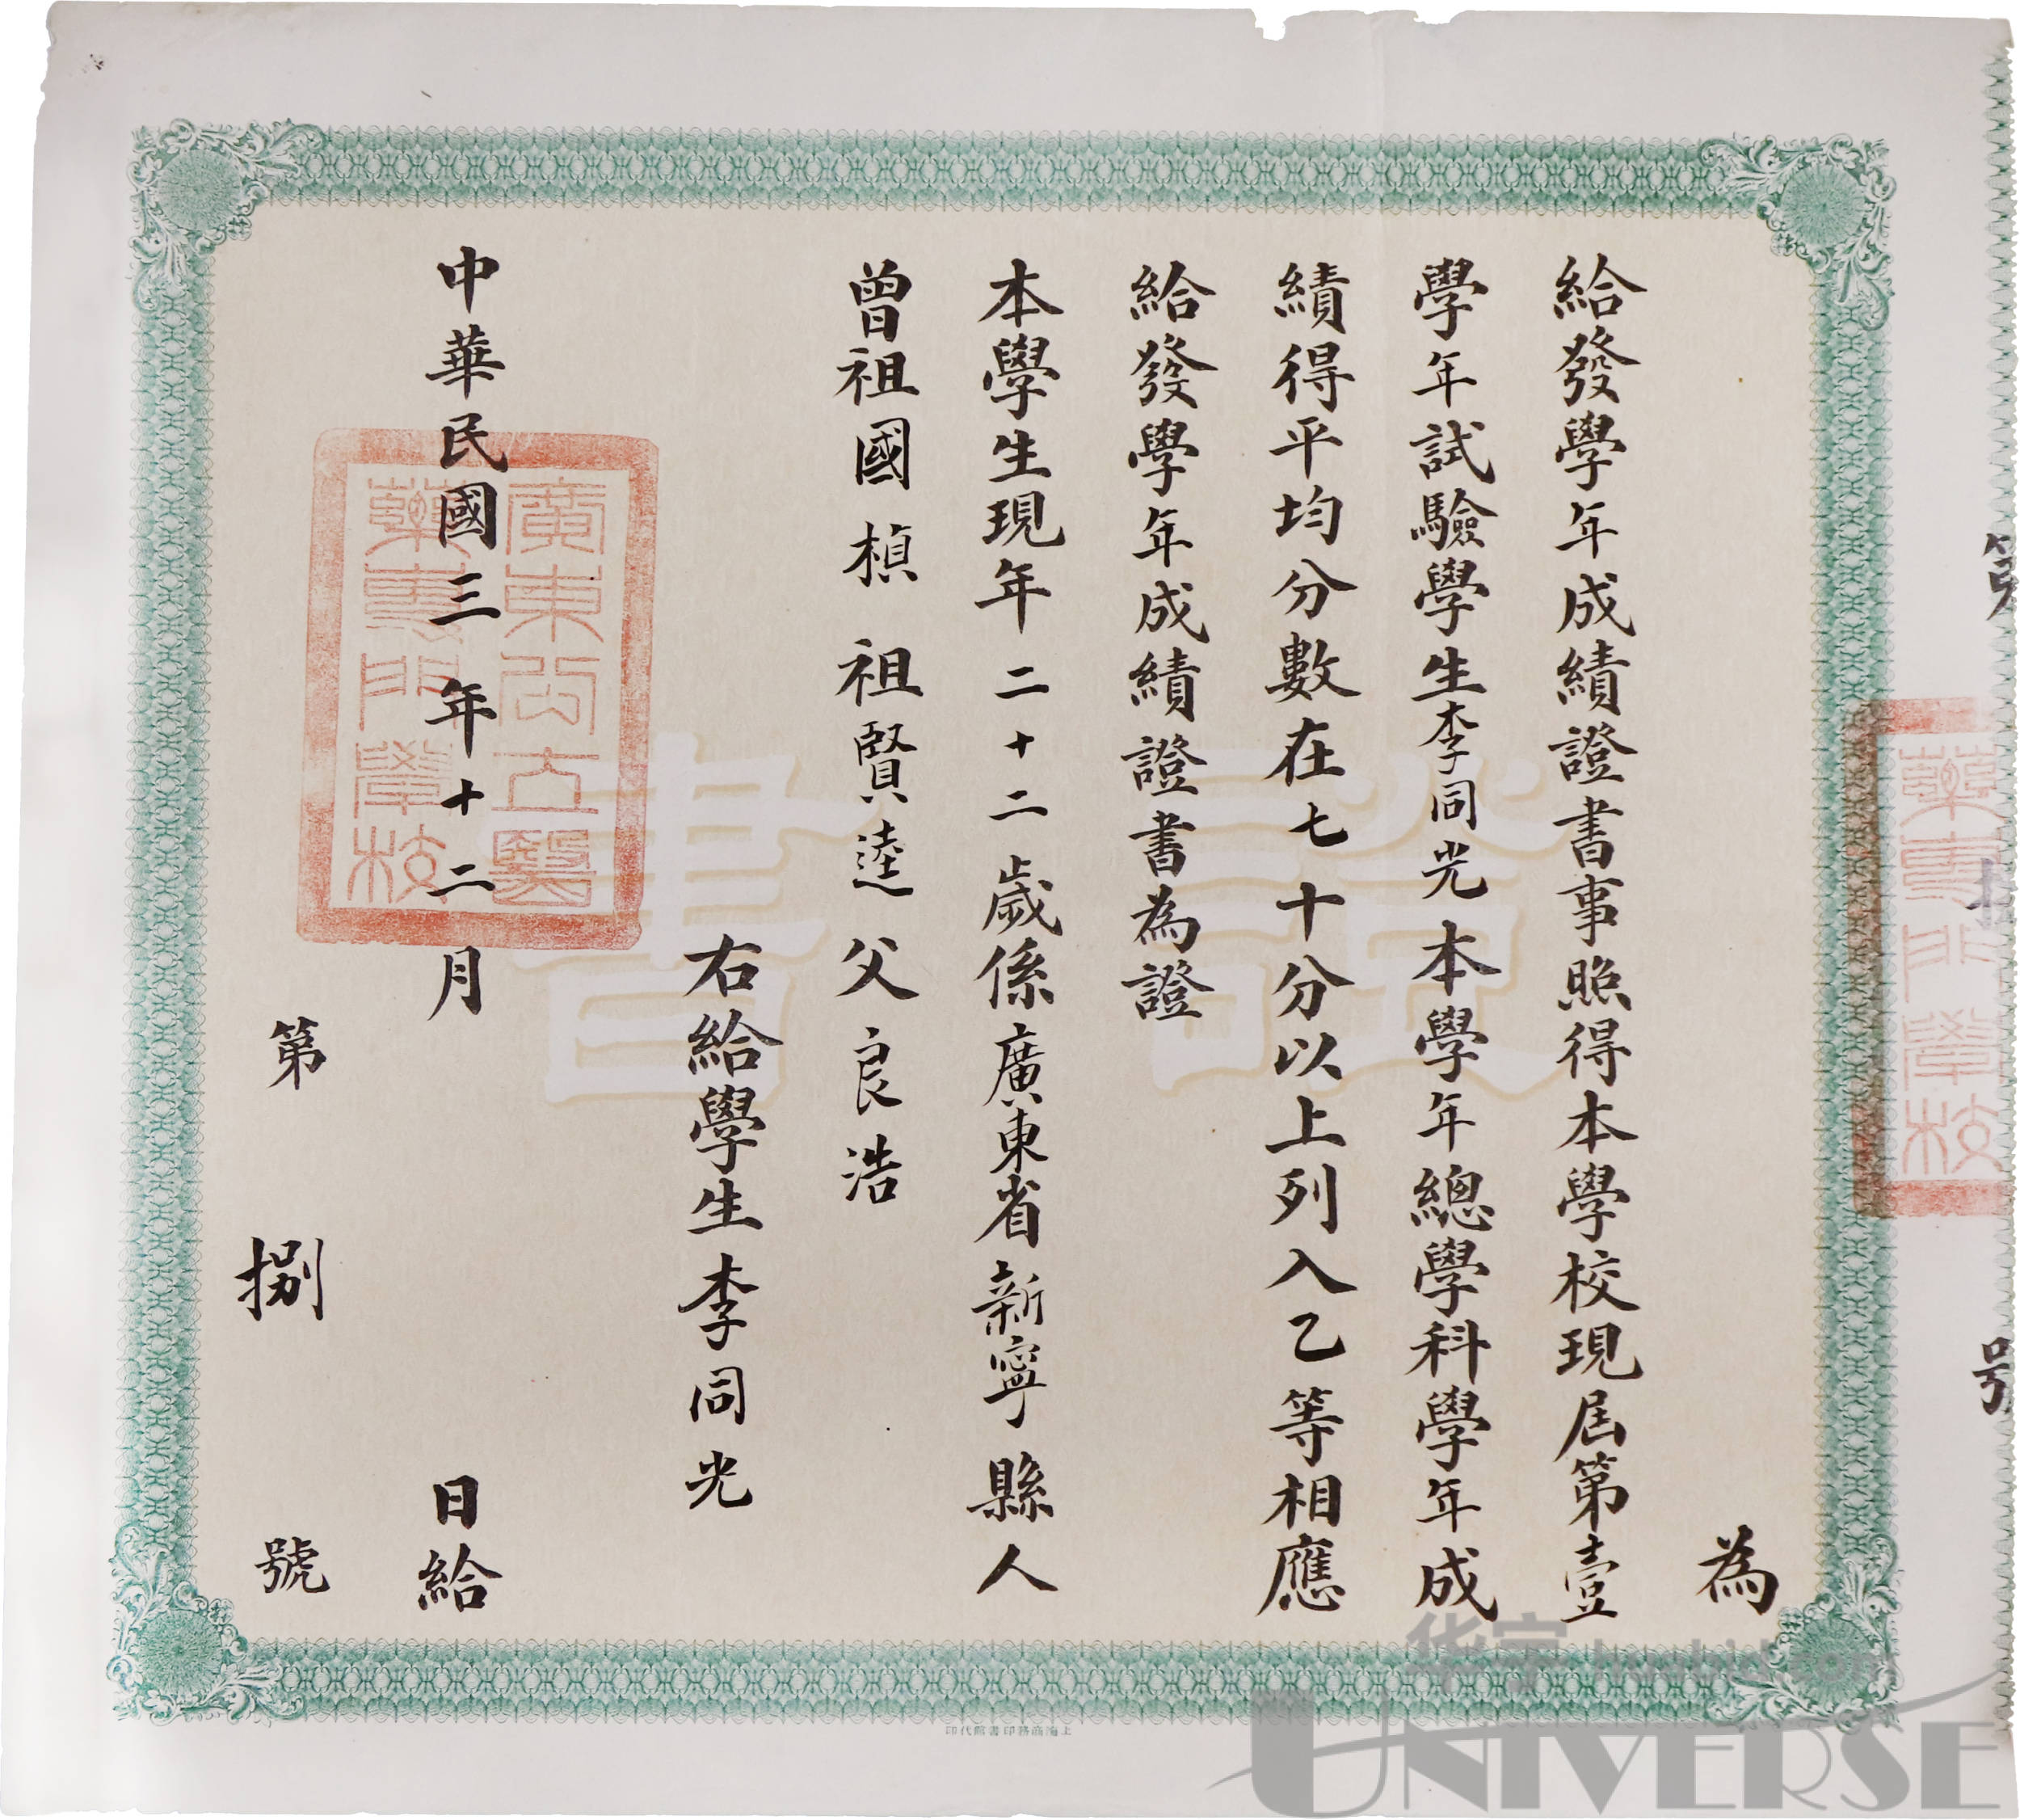 第 號
為
給發學年成績證書事照得本學校現屆第壹
學年試驗學生李同光本學年總學科學年成
績得平均分數在七十分以上列入乙等相應
給發學年成績證書為證
本學生現年二十二歲係廣東省新寧縣人
曾祖國楨 祖賢逵 父良浩
右給學生李同光
中華民國三年十二月 日給
第捌號
證書
廣東公立醫
藥專門學校
藥專門學校
上海商務印書館代印
华宇 huabid.com
UNIVERSE